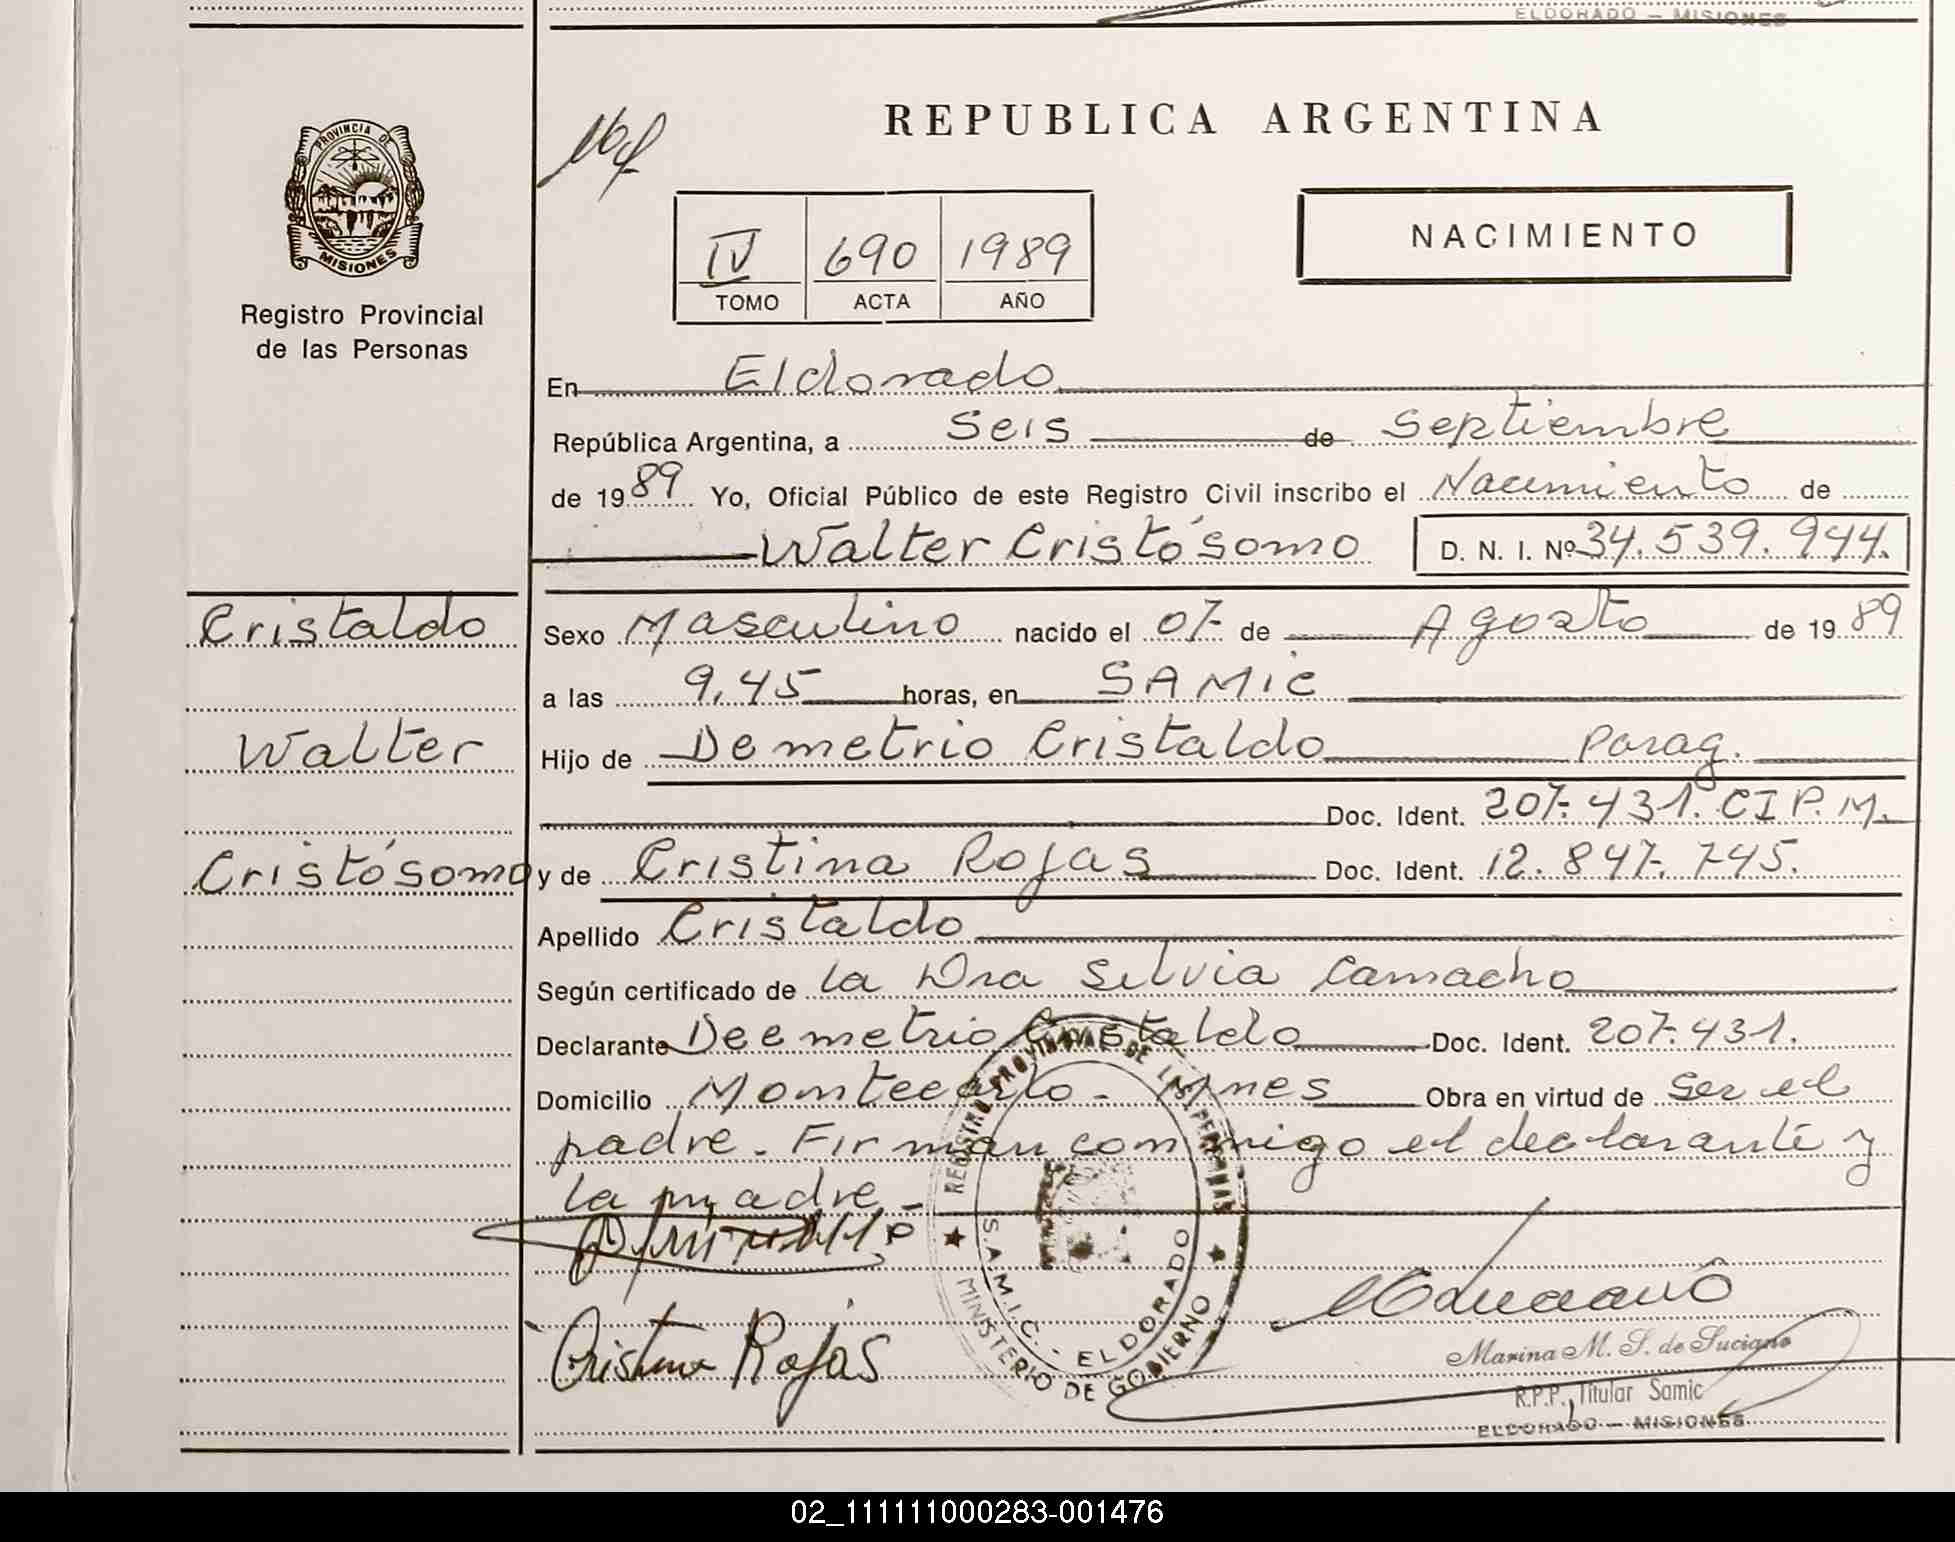 ELDORADO — MISIONES
REPUBLICA ARGENTINA
PROVINCIA DE
MISIONES
Registro Provincial
de las Personas
IV 690 1989
TOMO ACTA AÑO
NACIMIENTO
En Eldorado
República Argentina, a Seis de Septiembre
de 1989 Yo, Oficial Público de este Registro Civil inscribo el Nacimiento de
Walter Cristósomo D. N. I. Nº 34.539.944.
Cristaldo
Walter
Cristósomo
Sexo Masculino nacido el 07 de Agosto de 1989
a las 9,45 horas, en SAMIC
Hijo de Demetrio Cristaldo Parag.
Doc. Ident. 207.431. CI P.M.
y de Cristina Rojas Doc. Ident. 12.847.745.
Apellido Cristaldo
Según certificado de la Dra Silvia Camacho
Declarante Deemetrio Cristaldo Doc. Ident. 207.431.
Domicilio Montecarlo - Mnes Obra en virtud de ser el
padre. Firman conmigo el declarante y
la madre.
REGISTRO PROVINCIAL DE LAS PERSONAS
S.A.M.I.C. - ELDORADO
MINISTERIO DE GOBIERNO
Cristina Rojas
Marina M. S. de Luciano
R.P.P. Titular Samic
ELDORADO — MISIONES
02_111111000283-001476